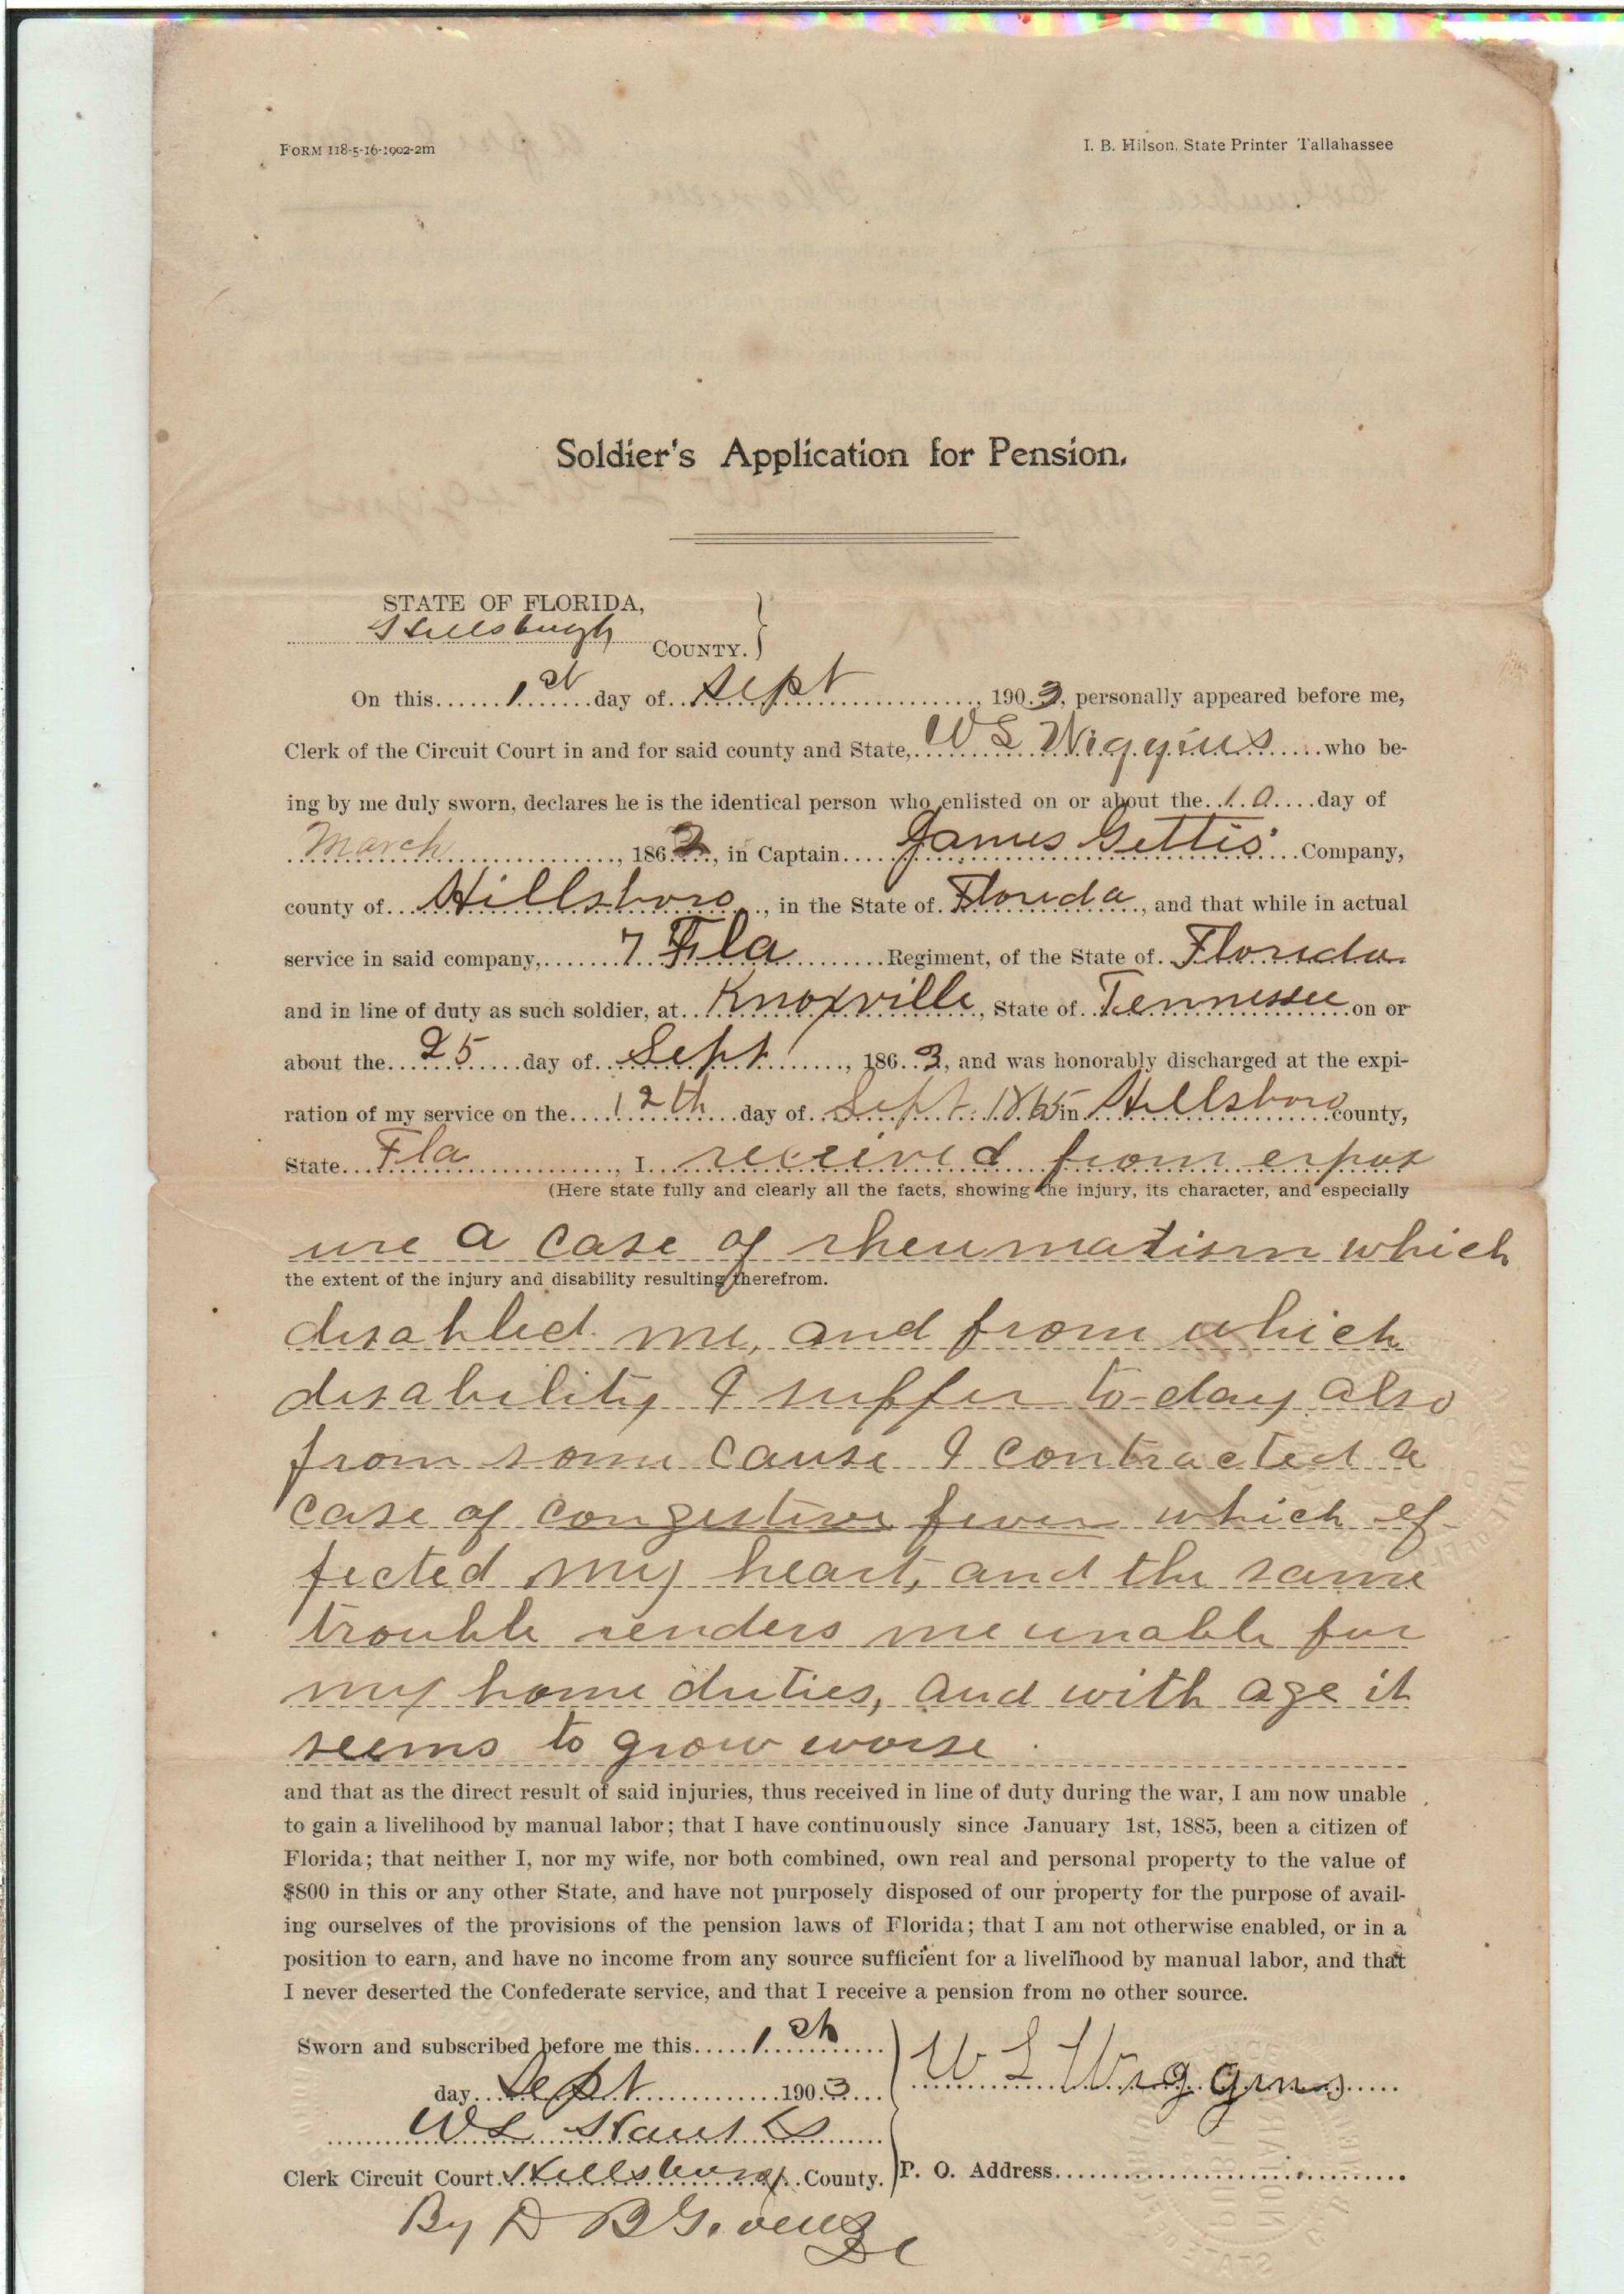 FORM 118-5-16-1902-2m
I. B. Hilson, State Printer Tallahassee
Soldier's Application for Pension.
STATE OF FLORIDA,
Hillsbugh COUNTY.
On this 1st day of Sept, 1903, personally appeared before me,
Clerk of the Circuit Court in and for said county and State, W L Wiggins who be-
ing by me duly sworn, declares he is the identical person who enlisted on or about the 10 day of
March, 1862, in Captain James Gettis' Company,
county of Hillsboro, in the State of Florida, and that while in actual
service in said company, 7 Fla Regiment, of the State of Florida
and in line of duty as such soldier, at Knoxville, State of Tennessee on or
about the 25 day of Sept, 1863, and was honorably discharged at the expi-
ration of my service on the 12th day of Sept. 1865 in Hillsboro county,
State Fla, I received from expos
(Here state fully and clearly all the facts, showing the injury, its character, and especially
ure a case of rheumatism which
the extent of the injury and disability resulting therefrom.
disabled me, and from which
disability I suffer to-day also
from some cause I contracted a
case of congestive fever which ef-
fected my heart, and the same
trouble renders me unable for
my home duties, and with age it
seems to grow worse.
and that as the direct result of said injuries, thus received in line of duty during the war, I am now unable
to gain a livelihood by manual labor; that I have continuously since January 1st, 1885, been a citizen of
Florida; that neither I, nor my wife, nor both combined, own real and personal property to the value of
$800 in this or any other State, and have not purposely disposed of our property for the purpose of avail-
ing ourselves of the provisions of the pension laws of Florida; that I am not otherwise enabled, or in a
position to earn, and have no income from any source sufficient for a livelihood by manual labor, and that
I never deserted the Confederate service, and that I receive a pension from no other source.
Sworn and subscribed before me this 1st
day Sept 1903
W L Wiggins
W L
Clerk Circuit Court County.
P. O. Address
By D B Givens
DC